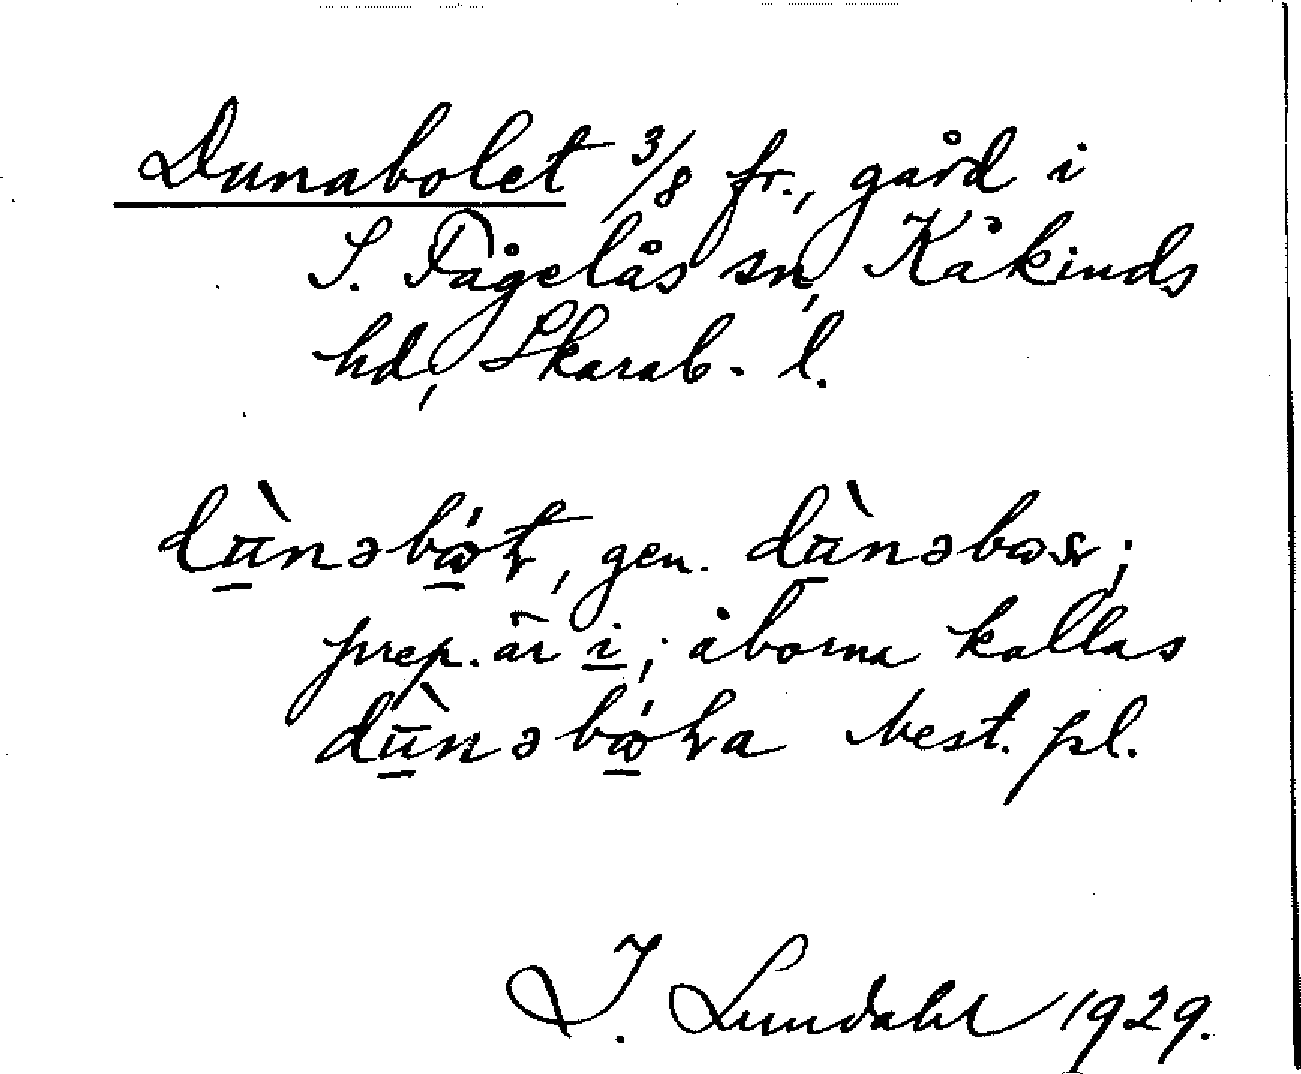 Dunabolet 3/8 fr., gård i
S. Fågelås sn, Kåkinds
hd, Skarab. l.
gen.
prep. är i; åborna kallas
best. pl.
I. Lundahl 1929.